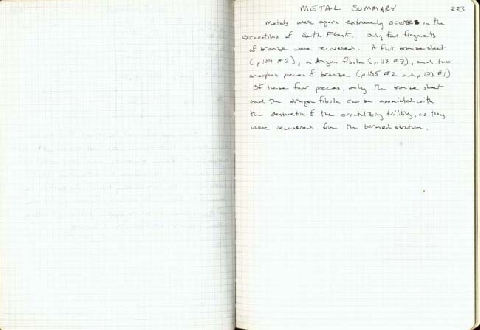 METAL SUMMARY 223
Metals were again extremely scarce in the
excavations of Earth . Only four fragments
of bronze were recovered. A flat bronze sheet
(p #2), a dragon fibula (p #2), and two
amorphous pieces of bronze (p #2 and p #1)
Of these four pieces, only the bronze sheet
and the dragon fibula can be associated with
the of the building, as they
were recovered from the stratum.